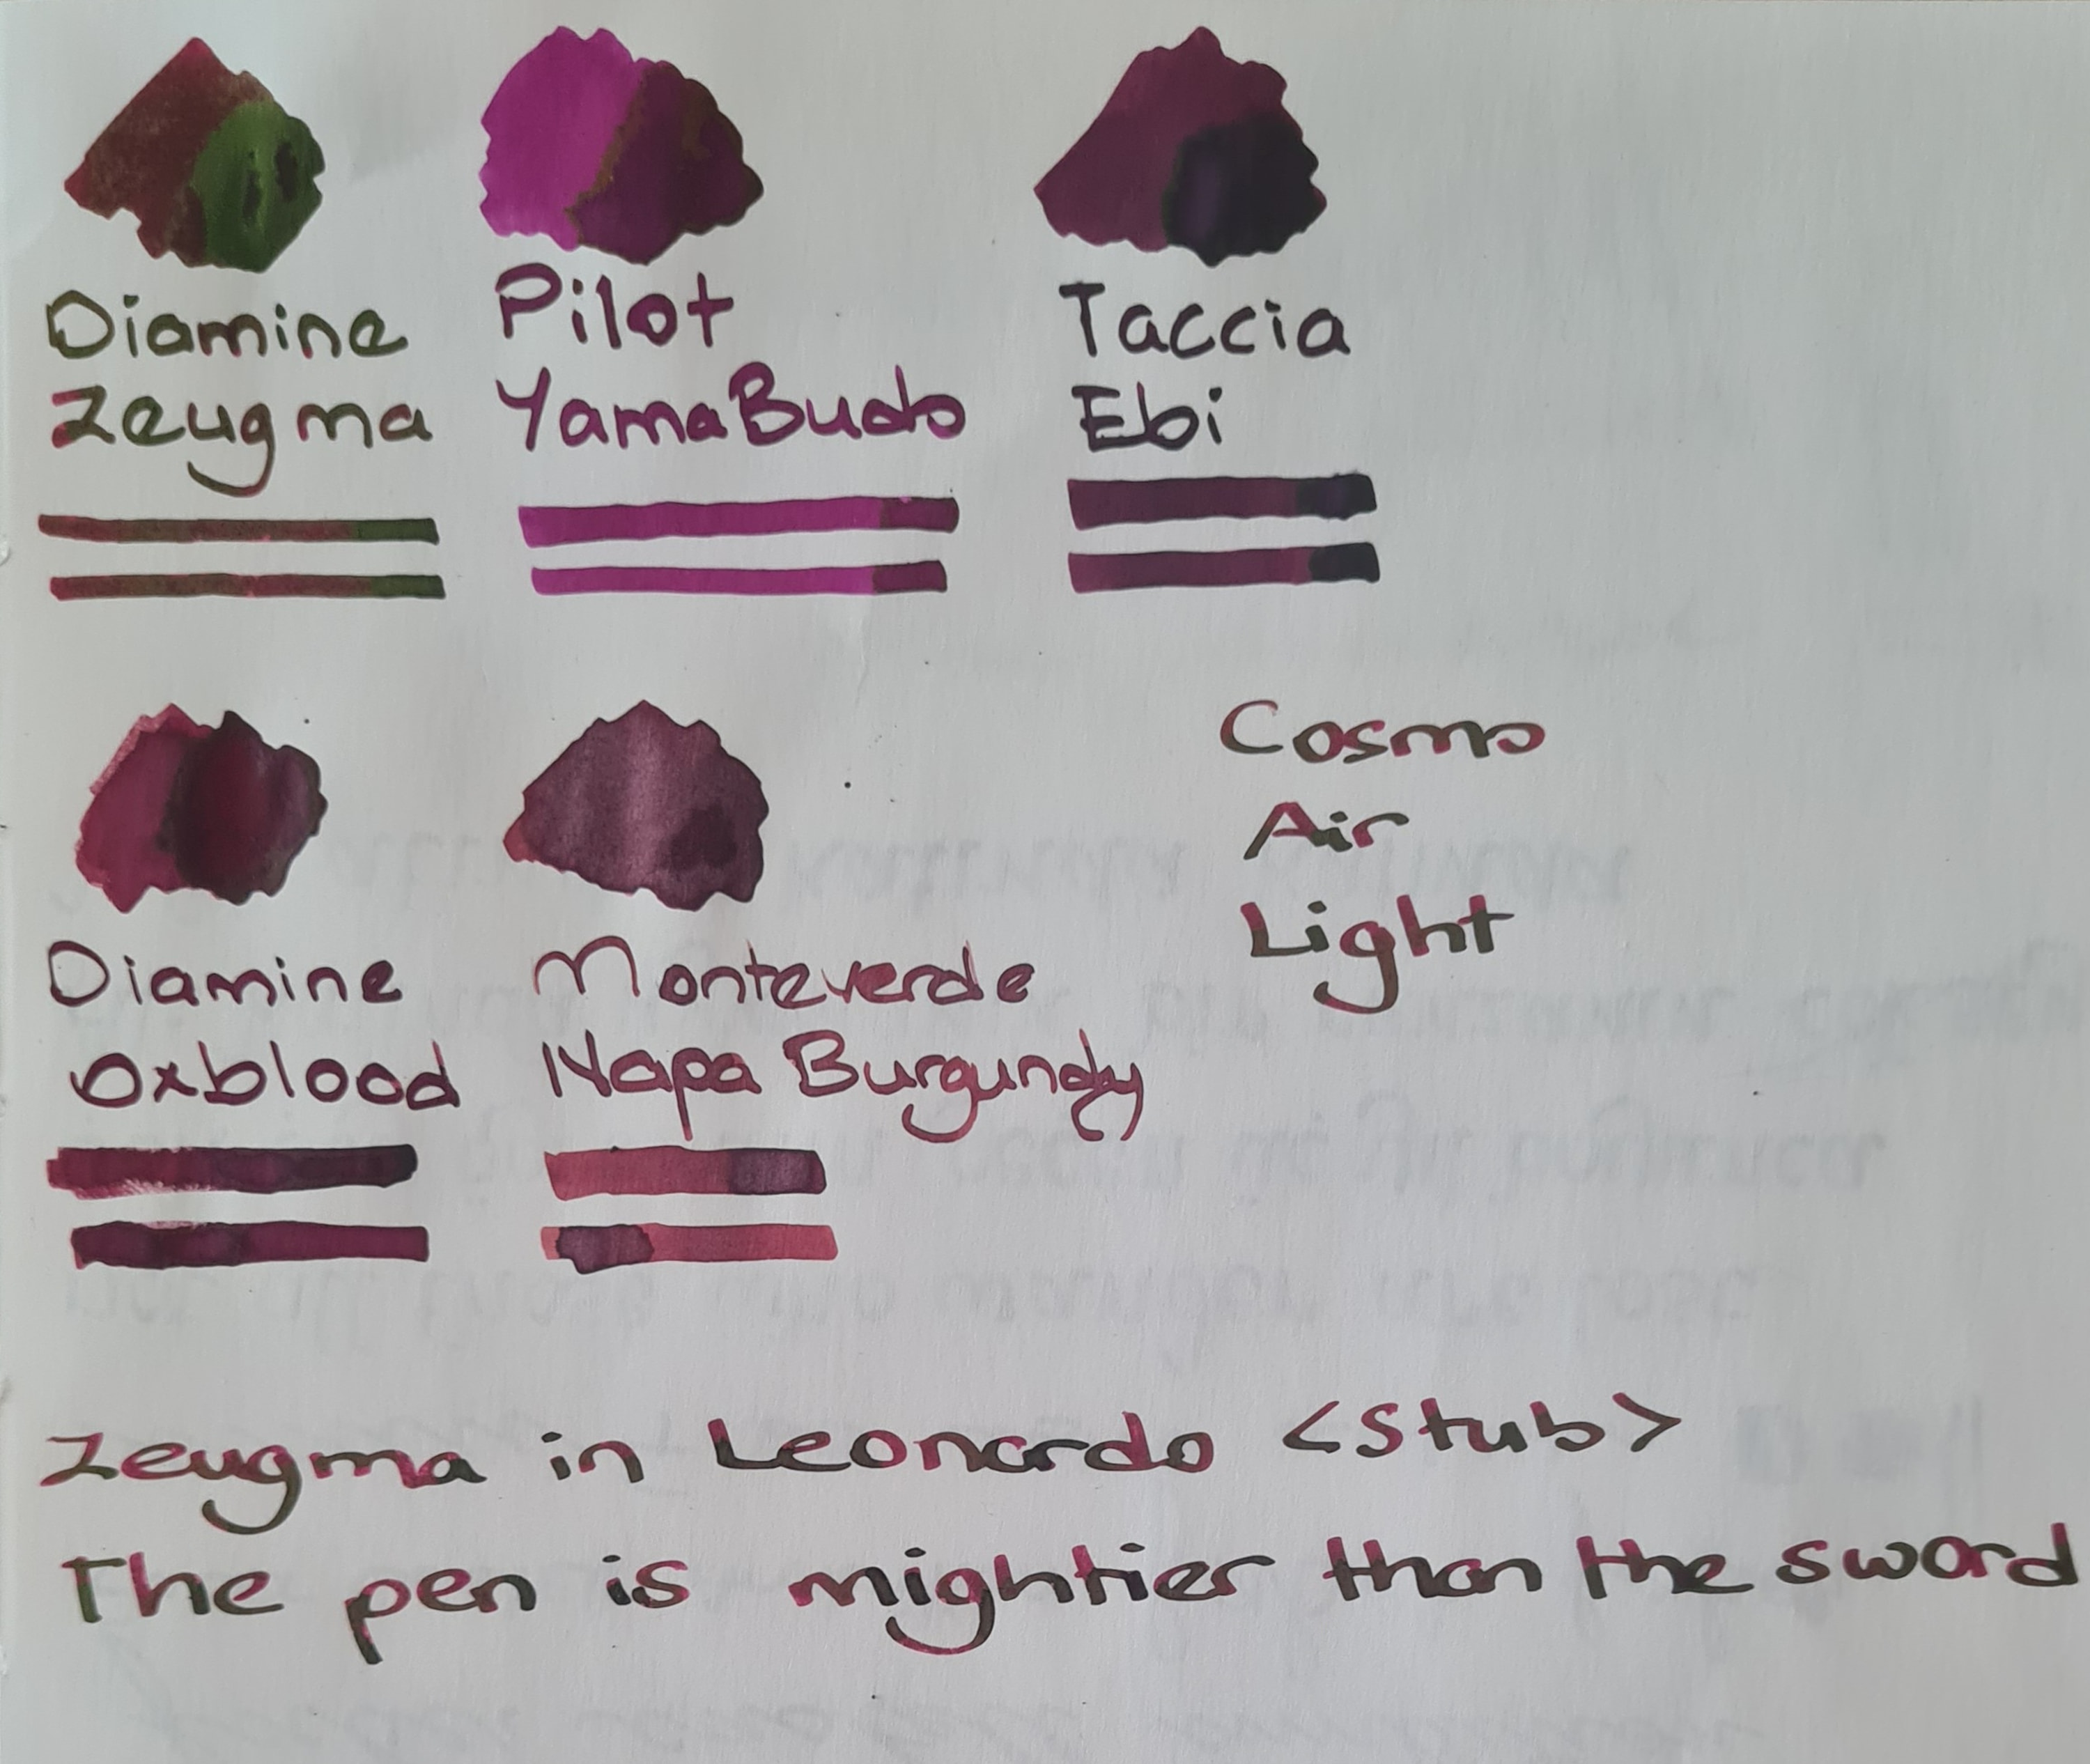 Diamine
Zeugma
Pilot
YamaBudo
Taccia
Ebi
Diamine
Oxblood
Monteverde
Napa Burgundy
Cosmo
Air
Light
Zeugma in Leonardo <Stub>
The pen is mightier than the sword